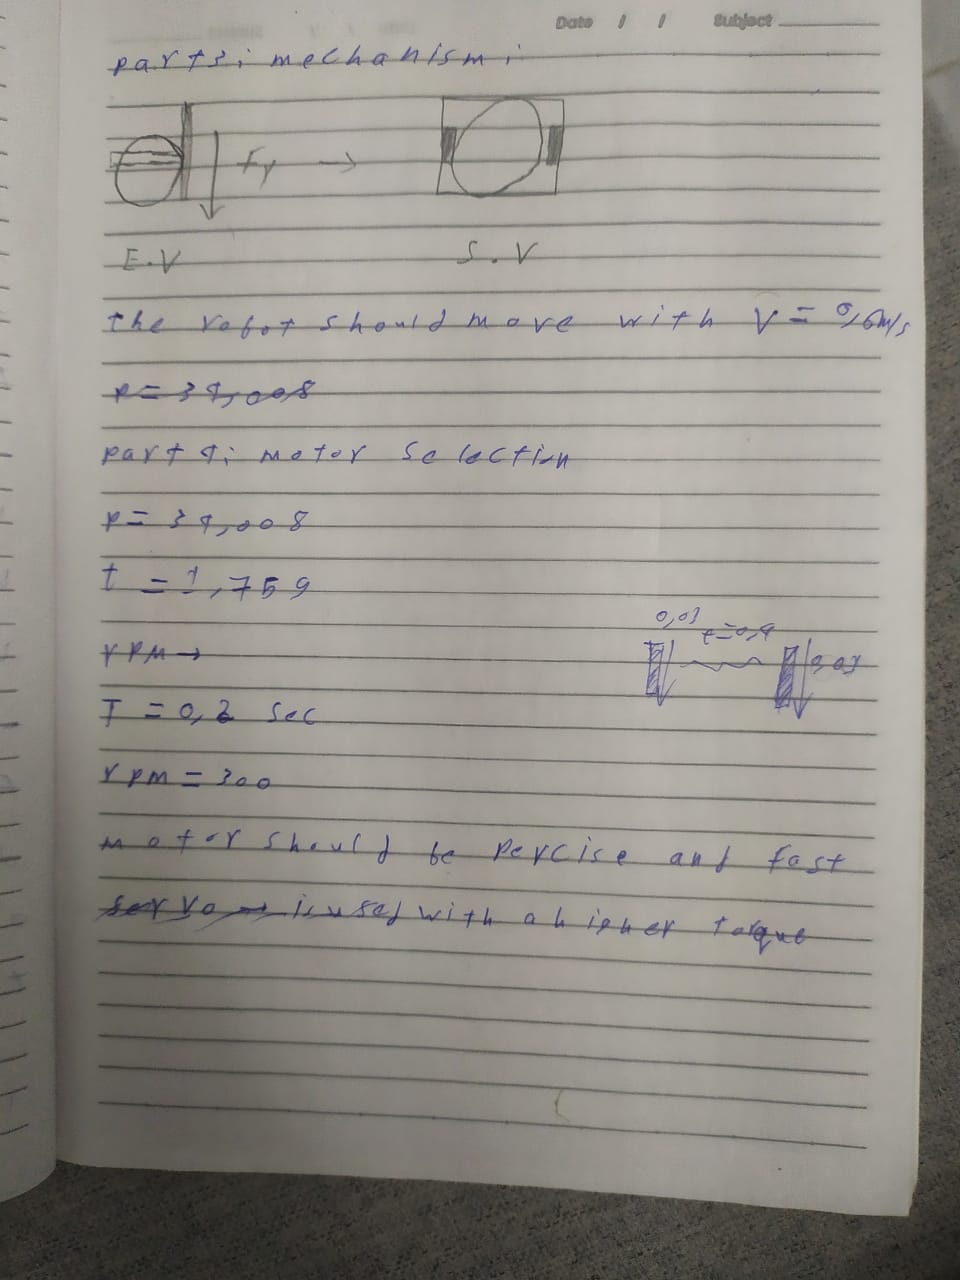 Date / / Subject
part 3: mechanism:
Fy →
E.V S.V
the robot should move with V = 0,6 m/s
part 4: motor selection
P = 34,008
t = 1,759
0,03
t=0,4
rpm →
0,03
T = 0,2 sec
rpm = 300
motor should be percise and fast
servo → is used with a higher torque